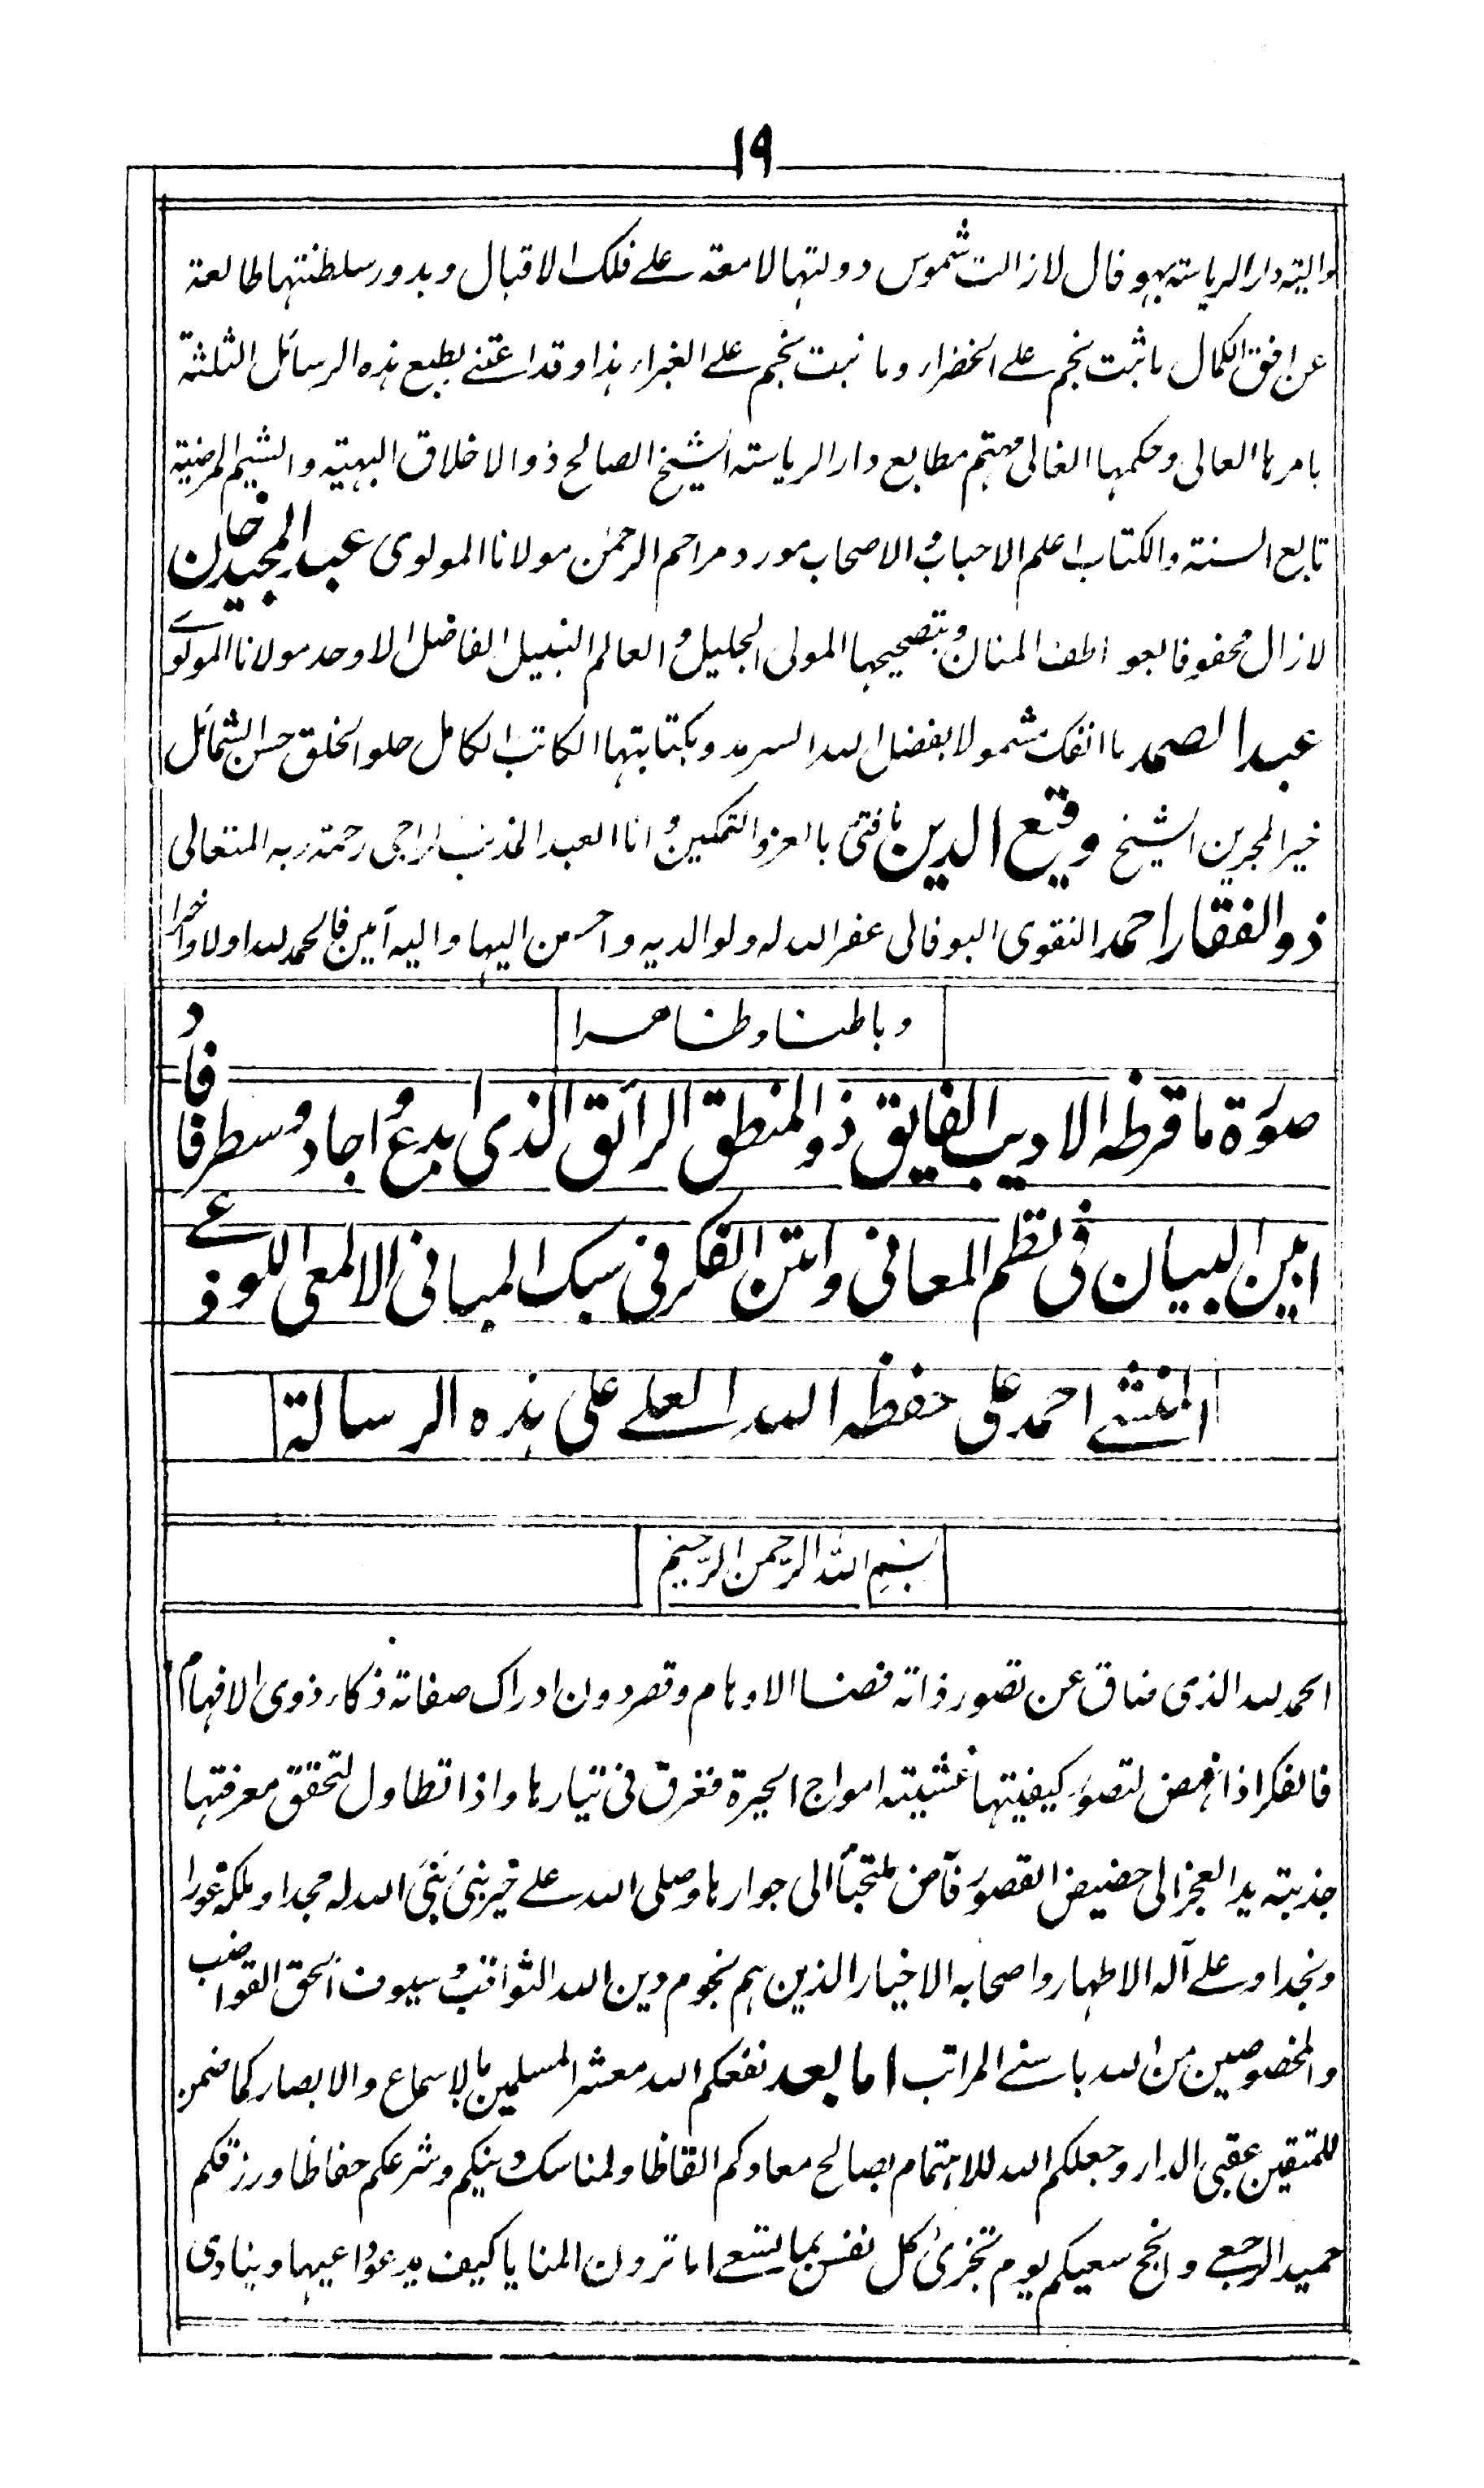 ١٩
والية دار الرياسته بهوفال لازالت شموس دولتها لامعة علے فلك الاقبال وبدور سلطنتها طالعة
عن افق الكمال ما ثبت نجم علے الخضراء وما نبت نجم علے الغبراء هذا وقد اعتنے بطبع هذه الرسائل الثلثة
بامرها العالى وحكمها الغالى مهتم مطابع دار الرياسته الشيخ الصالح ذو الاخلاق البهية والشيم المرضية
تابع السنة والكتاب اعلم الاحباب والاصحاب مورد مراحم الرحمٰن مولانا المولوى عبد المجيد خان
لازال محفوفا بعواطف المنان وبتصحيحها المولى الجليل والعالم النبيل الفاضل الاوحد مولانا المولوے
عبد الصمد ما انفك مشمولا بفضل الله السرمد وبكتابتها الكاتب الكامل حلو الخلق حسن الشمائل
خير المجرين الشيخ وقيع الدين ما فتئ بالعز والتمكين وانا العبد المذنب الراجى رحمة ربه المتعالى
ذو الفقار احمد النقوى البوفالى غفر الله له ولوالديه واحسن اليها واليه آمين فالحمد لله اولا واخرا
وباطنا وظاهرا
صورة ما قرظه الاديب الفايق ذو المنطق الرائق الذى ابدع واجاد وسطر فافاد
ابين البيان فى نظم المعانى واتقن الفكر فى سبك المبانى الالمعى اللوذعے
المنشے احمد على حفظه الله العلے على هذه الرسالة
بسم الله الرحمن الرحيم
الحمد لله الذى ضاق عن تصور ذاته فضا الاوهام وقصر دون ادراك صفاته ذكاء ذوى الافهام
فالفكر اذا نهض لتصور كيفيتها غشيته امواج الحيرة فغرق فى تيارها واذا تطاول لتحقق معرفتها
جذبته يد العجز الى حضيض القصور فآض ملتجأ الى جوارها وصلى الله علے خير نبى بنى الله له مجدا وملكه غورا
ونجدا وعلے آله الاطهار واصحابه الاخيار الذين هم نجوم دين الله الثواقب وسيوف الحق القواضب
والمخصوصين من الله باسنے المراتب اما بعد نفعكم الله معشر المسلمين بالاسماع والابصار كما ضمن
للمتقين عقبى الدار وجعلكم الله للاهتمام بصالح معادكم القاظا ولمناسك دينكم وشرعكم حفاظا ورزقكم
حميد الرجعے وانجح سعيكم يوم تجزىٰ كل نفس بما تسعے اما ترون المنايا كيف يدعو داعيها وينادى